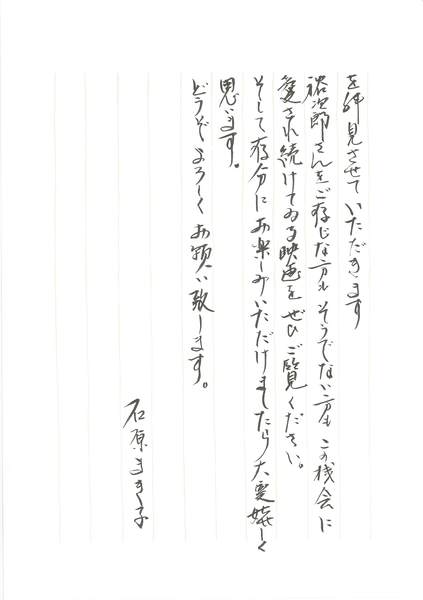 を拝見させていただきます
裕次郎さんをご存じな方もそうでない方もこの機会に
愛され続けてゐる映画をぜひご覧ください。
そして存分にお楽しみいただけましたら大変嬉しく
思います。
どうぞよろしくお願い致します。
石原まき子